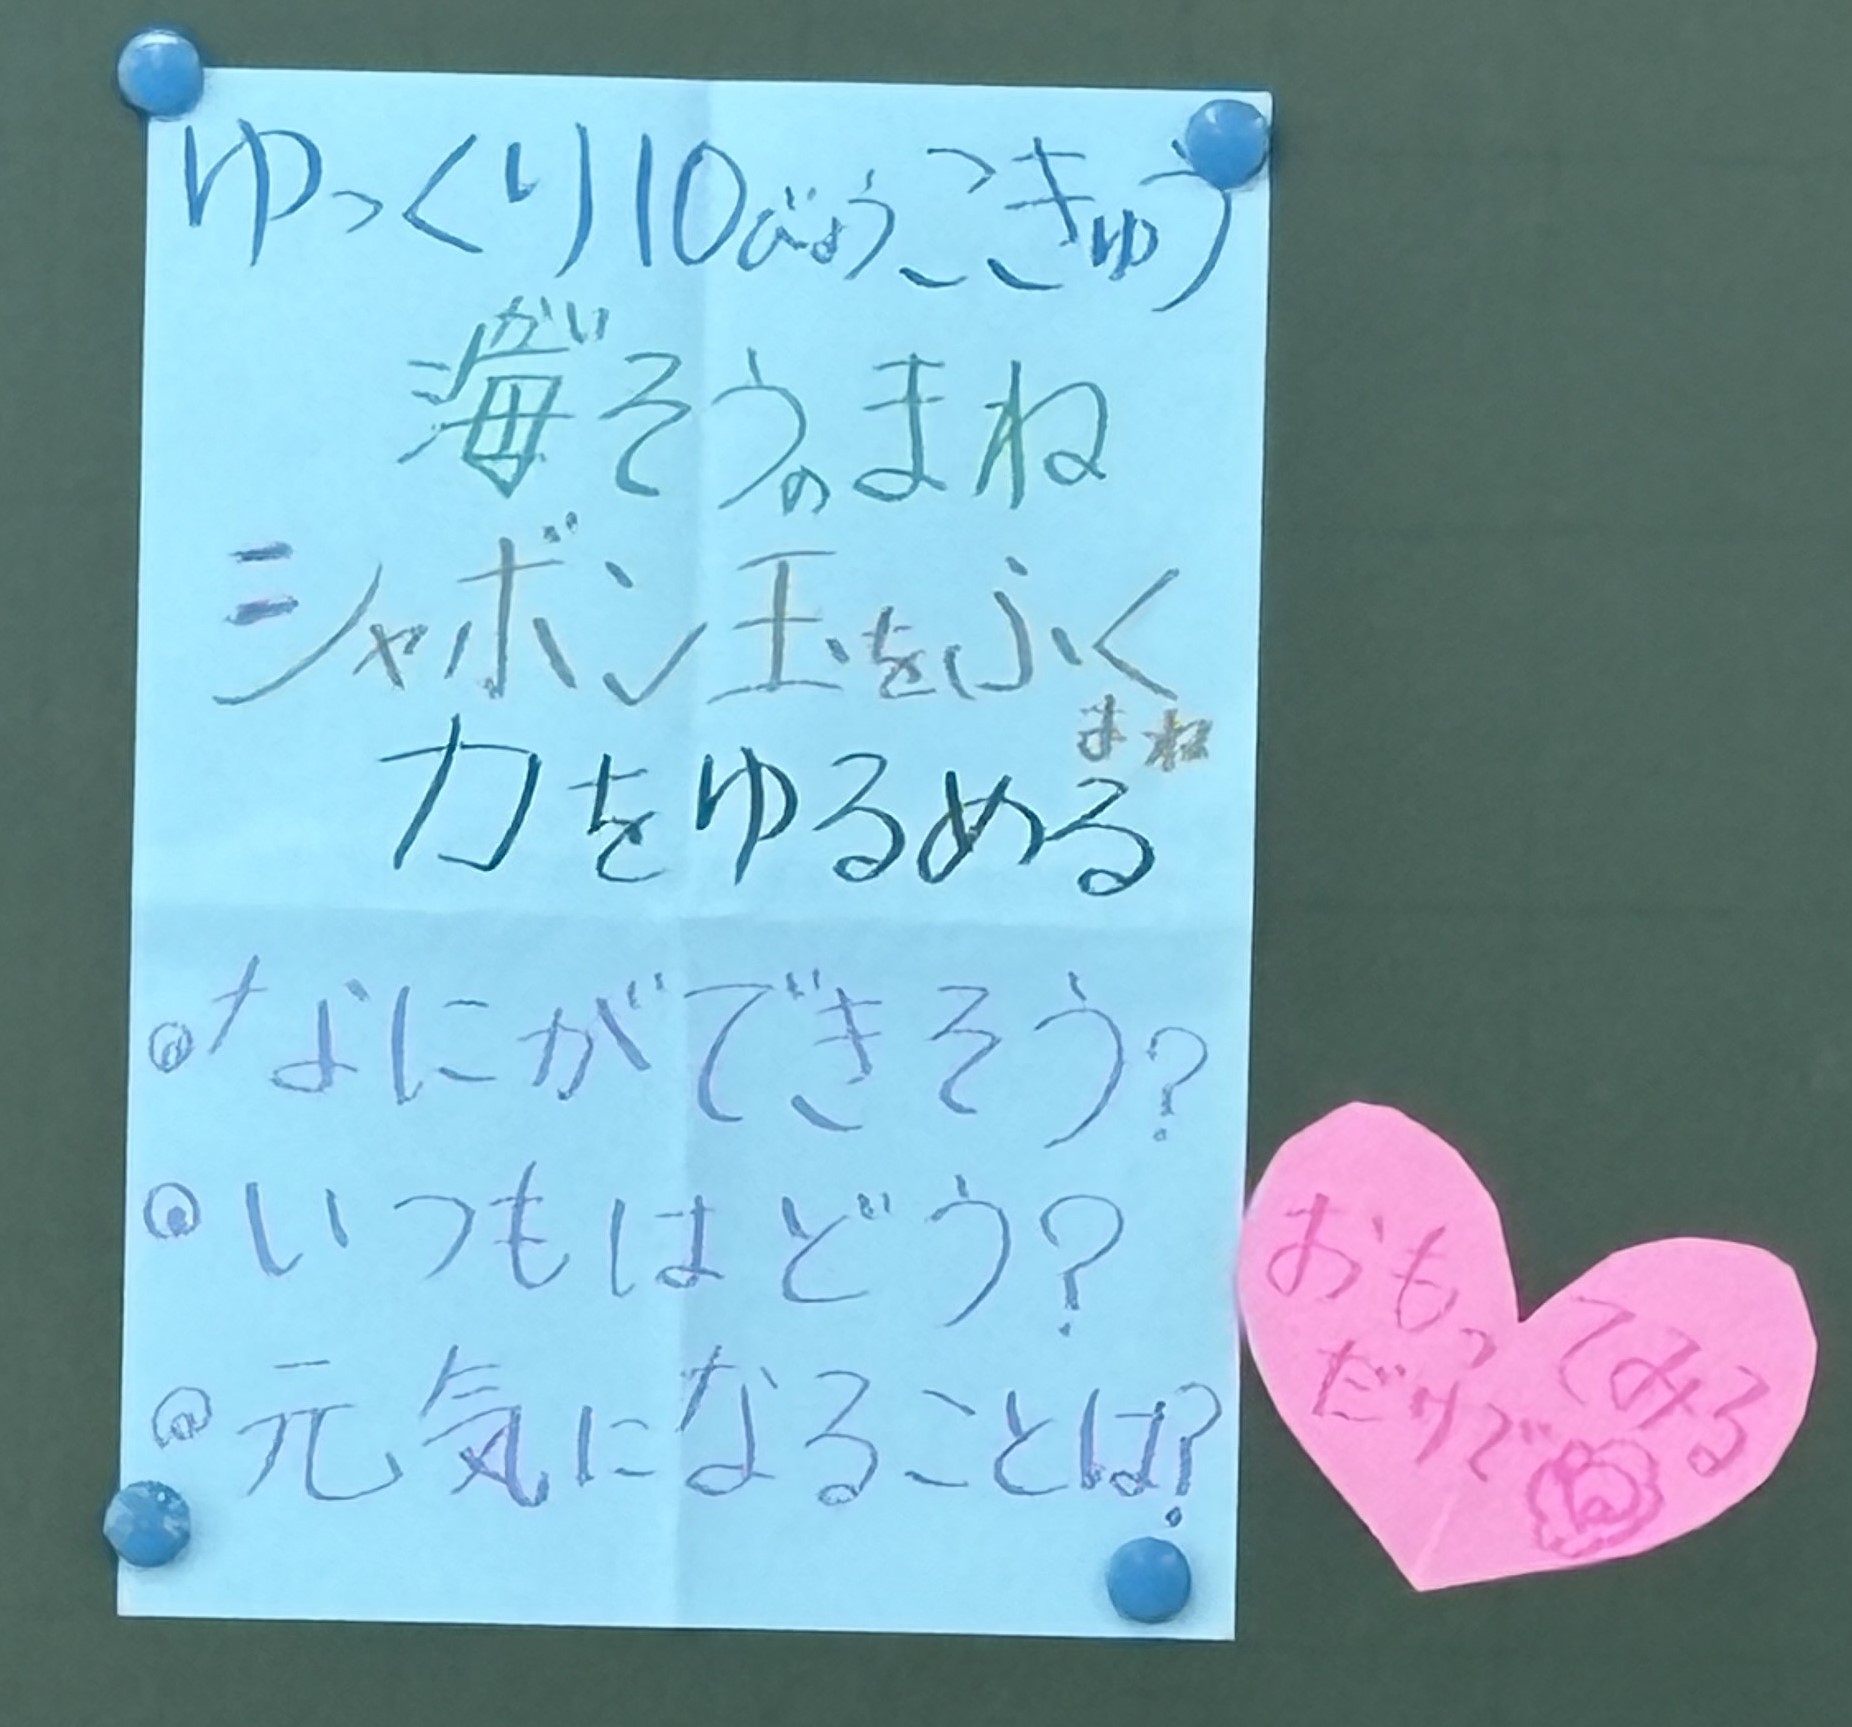 ゆっくり10びょうこきゅう
海そうのまね
かい
シャボン玉をふく
まね
力をゆるめる
なにができそう?
いつもはどう?
元気になることは?
おもってみる
だけで